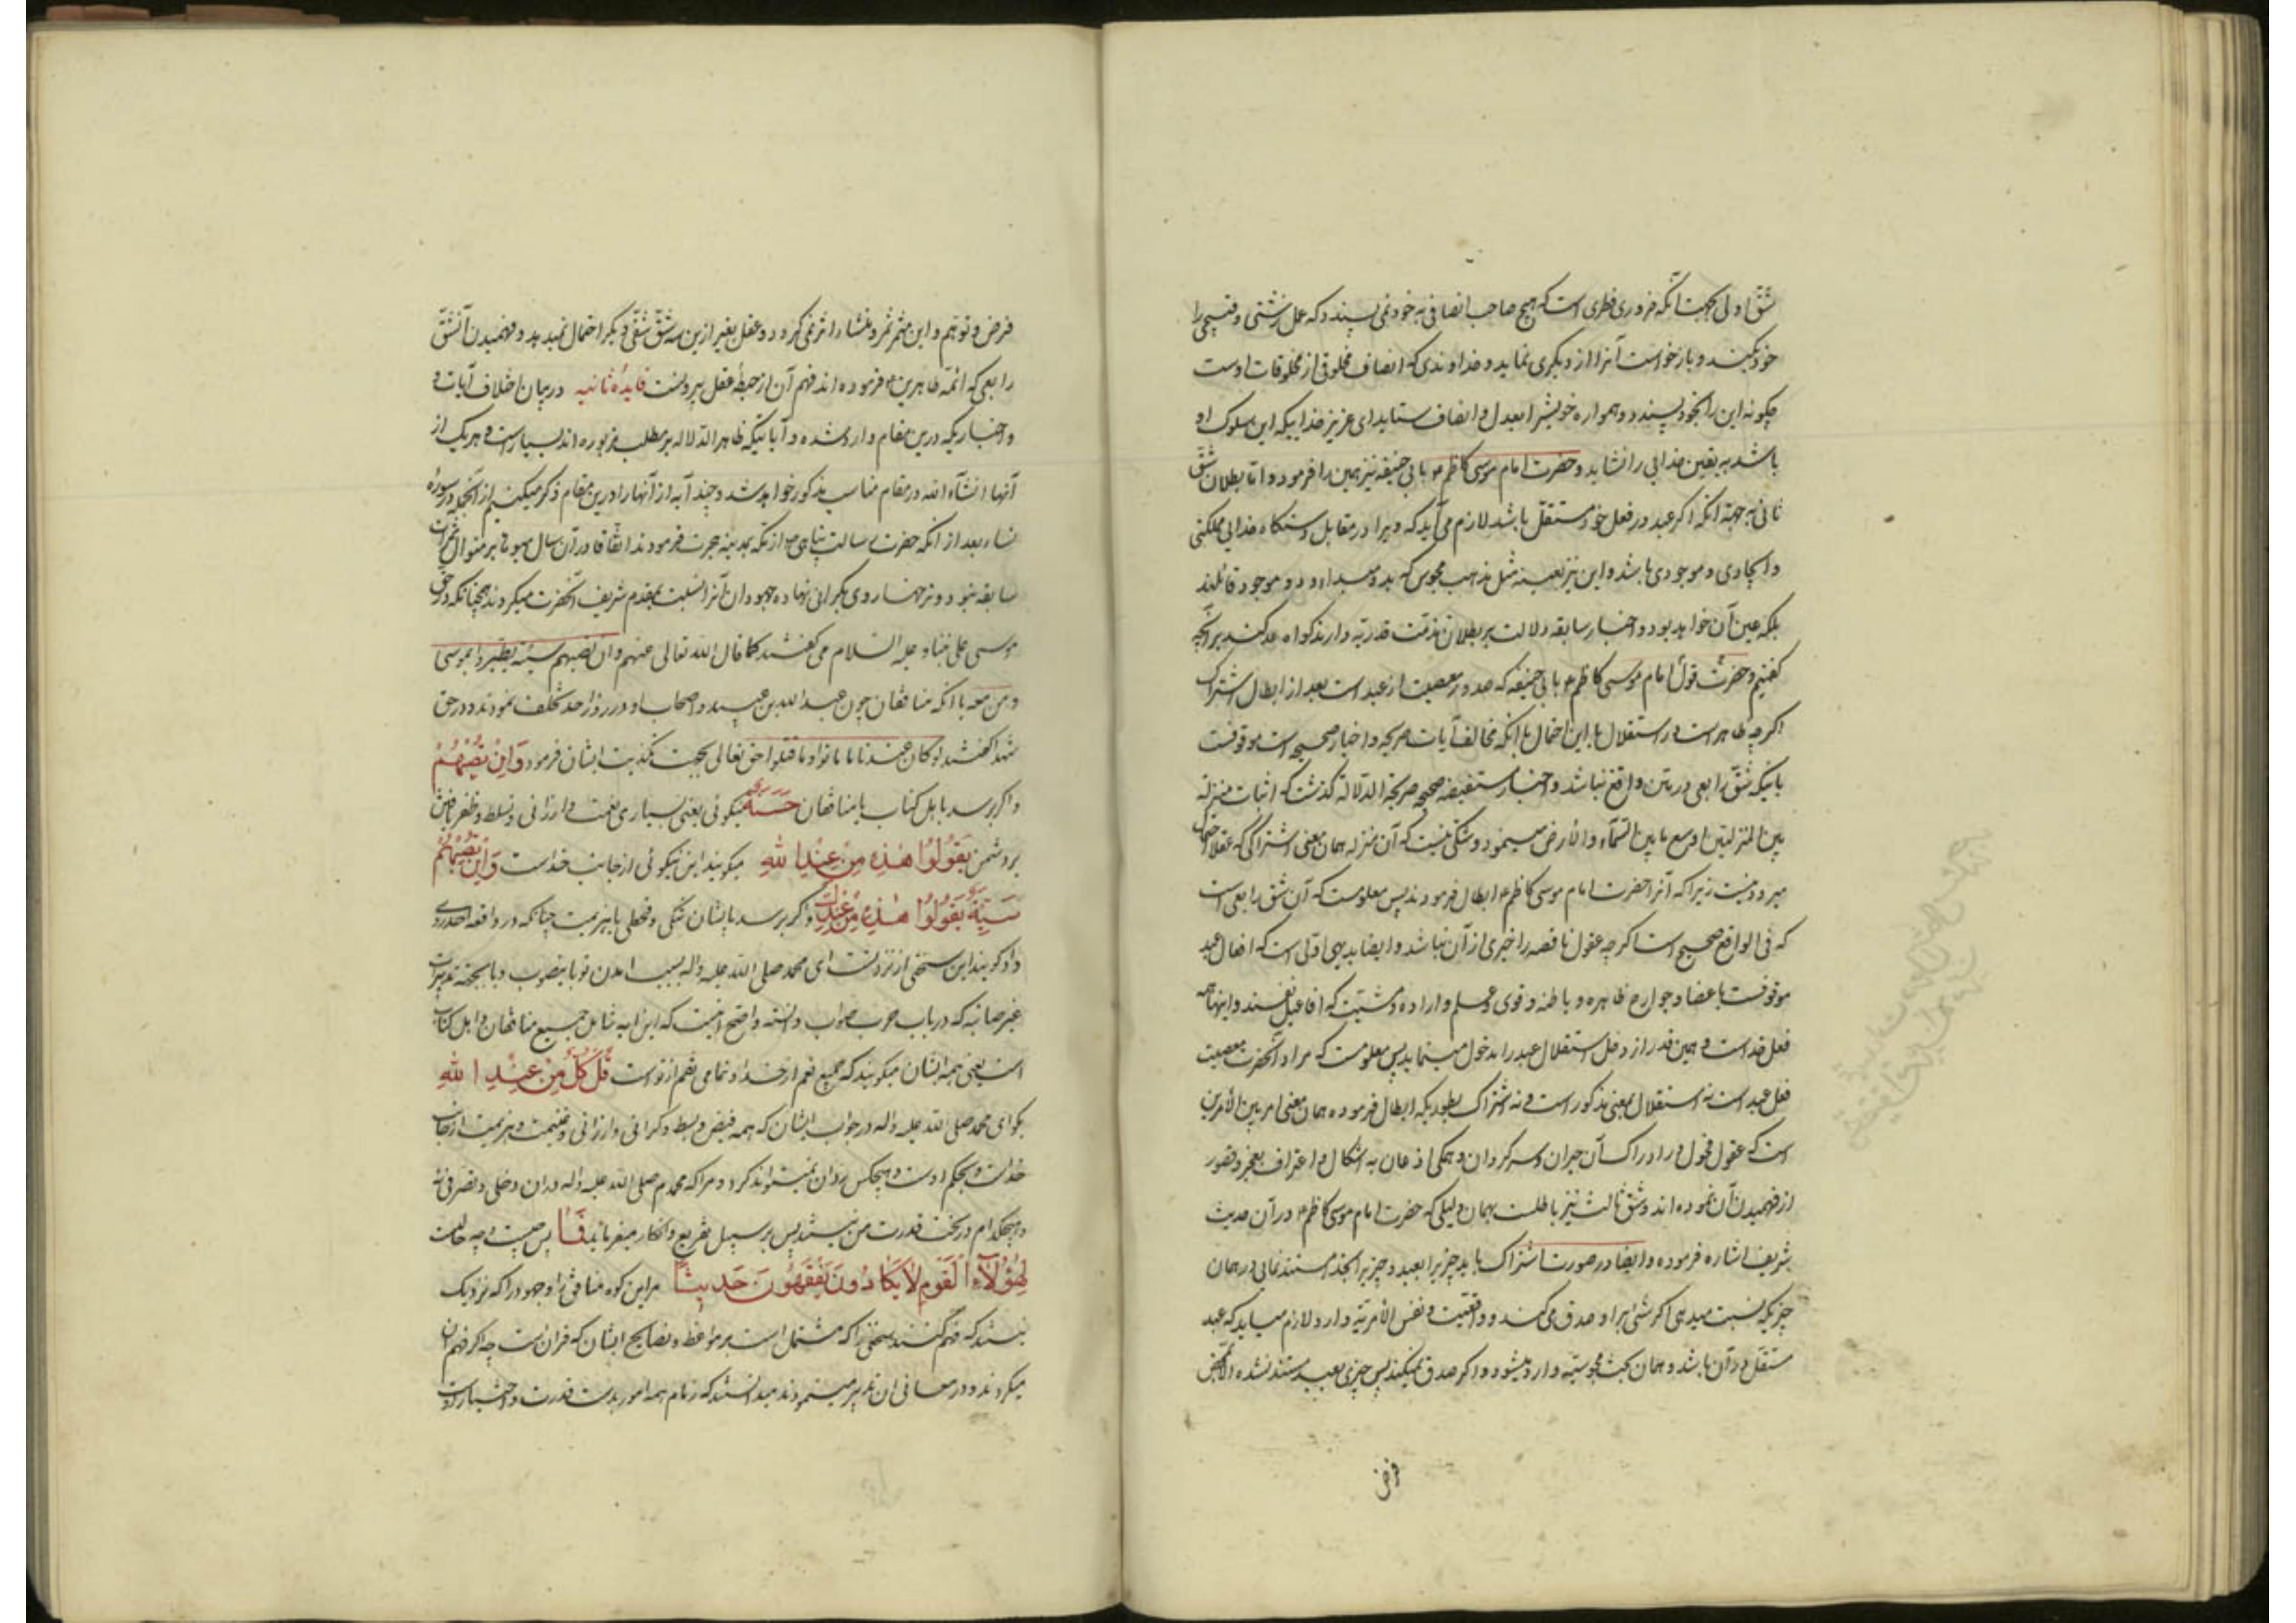 شقّ اولی بجهت آنکه ضروری فطری است که هیچ صاحب انصافی به خود نمی پسندد که عمل زشتی و قبیحی را
خود بکند و بازخواست آنرا از دیگری نماید و خداوندی که انصاف مخلوقی از مخلوقات اوست
چگونه این را بخود پسندد و همواره خویش را بعدل و انصاف ستاید ای عزیز خداییکه این سلوک او
باشد به یقین خدایی را نشاید و حضرت امام موسی کاظم با بی حنیفه نیز همین را فرمود و اما بطلان شقّ
ثانی به جهته آنکه اگر عبد در فعل خود مستقلّ باشد لازم می آید که ویرا در مقابل دستگاه خدایی مملکتی
و ایجادی و موجودی باشد و این نیز بعینه مثل مذهب مجوس که بدو مبداء و دو موجود قائلند
بلکه عین آن خواهد بود و اخبار سابقه دلالت بر بطلان مذمّت قدریّه دارند گواه عدلند بر آنچه
گفتیم و حضرت قول امام موسی کاظم با بی حنیفه که صدور معصیت از عبد است بعد از ابطال اشتراک
اگرچه ظاهر است در استقلال با این احتمال با آنکه مخالف آیات صریحه و اخبار صحیحه است موقوفست
باینکه شقّ رابعی در متن واقع نباشد و اخبار مستفیضه صحیحه صریحة الدلالة گذشت که اثبات منزله
بین المنزلتین اوسع ما بین السّمآء و الأرض مینمود و شکّی نیست که آن منزله همان معنی اشتراکی که عقلا احتمال
میرود نیست زیرا که آنرا حضرت امام موسی کاظم ابطال فرمودند پس معلومست که آن شق رابعی است
که فی الواقع صحیح است اگرچه عقول ناقصه را خبری از آن نباشد و ایضا بدیهی اوّلی است که افعال عبد
موقوفست باعضا و جوارح ظاهره و باطنه و قوی و علم و اراده و مشیّت که افاعیل نفسند و اینها همه
فعل خداست و همین قدر از دخل استقلال عبد را مدخول مینماید پس معلومست که مراد آنحضرت معصیت
فعل عبد است نه استقلال بمعنی مذکور است و نه اشتراک بطوریکه ابطال فرموده همان معنی امر بین الأمرین
است که عقول فحول در ادراک آن حیران و سرگردان و همگی اذعان به اشکال و اعتراف بعجز و قصور
از فهمیدن آن نموده اند و شقّ ثالث نیز باطلست بهمان دلیلی که حضرت امام موسی کاظم در آن حدیث
شریف اشاره فرموده و ایضا در صورت اشتراک باید چیزیرا بعبد و چیزیرا بخدا مستند نمایی در همان
چیزیکه نسبت میدهی اگر شئی براو صدق می کند و واقعیّت و نفس الأمریّة دارد لازم میاید که عبد
مستقلّ در آن باشد و همان بحث مجوسیّه وارد میشود و اگر صدق نمیکند پس چیزی بعبد مستند نشده الّا بمحض
فرض
فرض و توهّم و این مثمر ثمر و منشاء اثر نمی گردد و عقل بغیر از این سه شقّ شقّی دیگر احتمال نمیدهد و فهمیدن آن شقّ
رابعی که ائمّه طاهرین فرموده اند فهم آن از حیطهٔ عقل بیرونست فایدهٔ ثانیه در بیان اختلاف آیات
و اخباریکه درین مقام وارد شده و آیاتیکه ظاهر الدّلاله بر مطلب مزبوره اند بسیار است و هر یک از
آنها انشآء الله در مقام مناسب مذکور خواهد شد و چند آیه از آنها را درین مقام ذکر میکنیم از آنجمله در سورهٔ
نساء بعد از آنکه حضرت رسالت پناهی از مکّه بمدینه هجرت فرمودند اتفاقا در آن سال میوه ها بر منوال ثمرات
سابقه نبود و نرخها رو بگرانی نهاده جهودان آنرا نسبت بمقدم شریف آنحضرت میکردند همچنانکه در حق
موسی علی نبینا و علیه السلام می گفتند کما قال الله تعالی عنهم و ان تصبهم سیئة یطیروا بموسی
و من معه با آنکه منافقان چون عبد الله بن و اصحاب او در روز احد تخلف نمودند و در حق
شهدا گفتند لو کانوا عندنا ما ماتوا و ما قتلوا حق تعالی بجهت تکذیب ایشان فرمود وَاِنْ تُصِبْهُمْ
و اگر برسد باهل کتاب یا منافقان حَسَنَةٌ نیکوئی یعنی بسیاری نعمت و ارزانی و تسلط و ظفر یافتن
بر دشمن یَقُولُوا هٰذِهِ مِنْ عِنْدِ اللّٰهِ میگویند این نیکوئی از جانب خداست وَاِنْ تُصِبْهُمْ
سَیِّئَةٌ یَقُولُوا هٰذِهِ مِنْ عِنْدِكَ و اگر برسد بایشان تنگی و قحطی یا هزیمت چنانکه در واقعه احد روی
داد گویند این سختی از نزد تست ای محمد صلی الله علیه و اله بسبب امدن تو با یثرب و یا بجهته تدبیرات
غیر صائبه که در باب حرب صواب دانسته و اضح انست که این ایه شامل جمیع منافقان و اهل کتاب
است یعنی همه ایشان میگویند که جمیع نعم از خدا و تمامی نقم از تو است قُلْ كُلٌّ مِنْ عِنْدِ اللّٰهِ
بگو ای محمد صلی الله علیه و اله در جواب ایشان که همه قبض و بسط و گرانی و ارزانی و غنیمت و هزیمت از جانب
خداست و بحکم اوست و هیچکس رد ان نمیتواند کرد و مرا که محمدم صلی الله علیه و اله در ان دخلی و تصرفی نه
و هیچکدام در تحت قدرت من نیستند پس بر سبیل تقریع و انکار میفرماید فَمَا پس چیست و چه حالست
لِهٰؤُلَآءِ الْقَوْمِ لَا یَكَادُونَ یَفْقَهُونَ حَدِیثًا مر این گروه منافق را و جهود را که نزدیک
نیستند که فهم کنند سخنی را که مشتمل است بر مواعظ و نصایح ایشان که قران است چه اگر فهم ان
میکردند و در معانی ان تدبر مینمودند میدانستند که زمام همه امور بدست قدرت و اختیار اوست